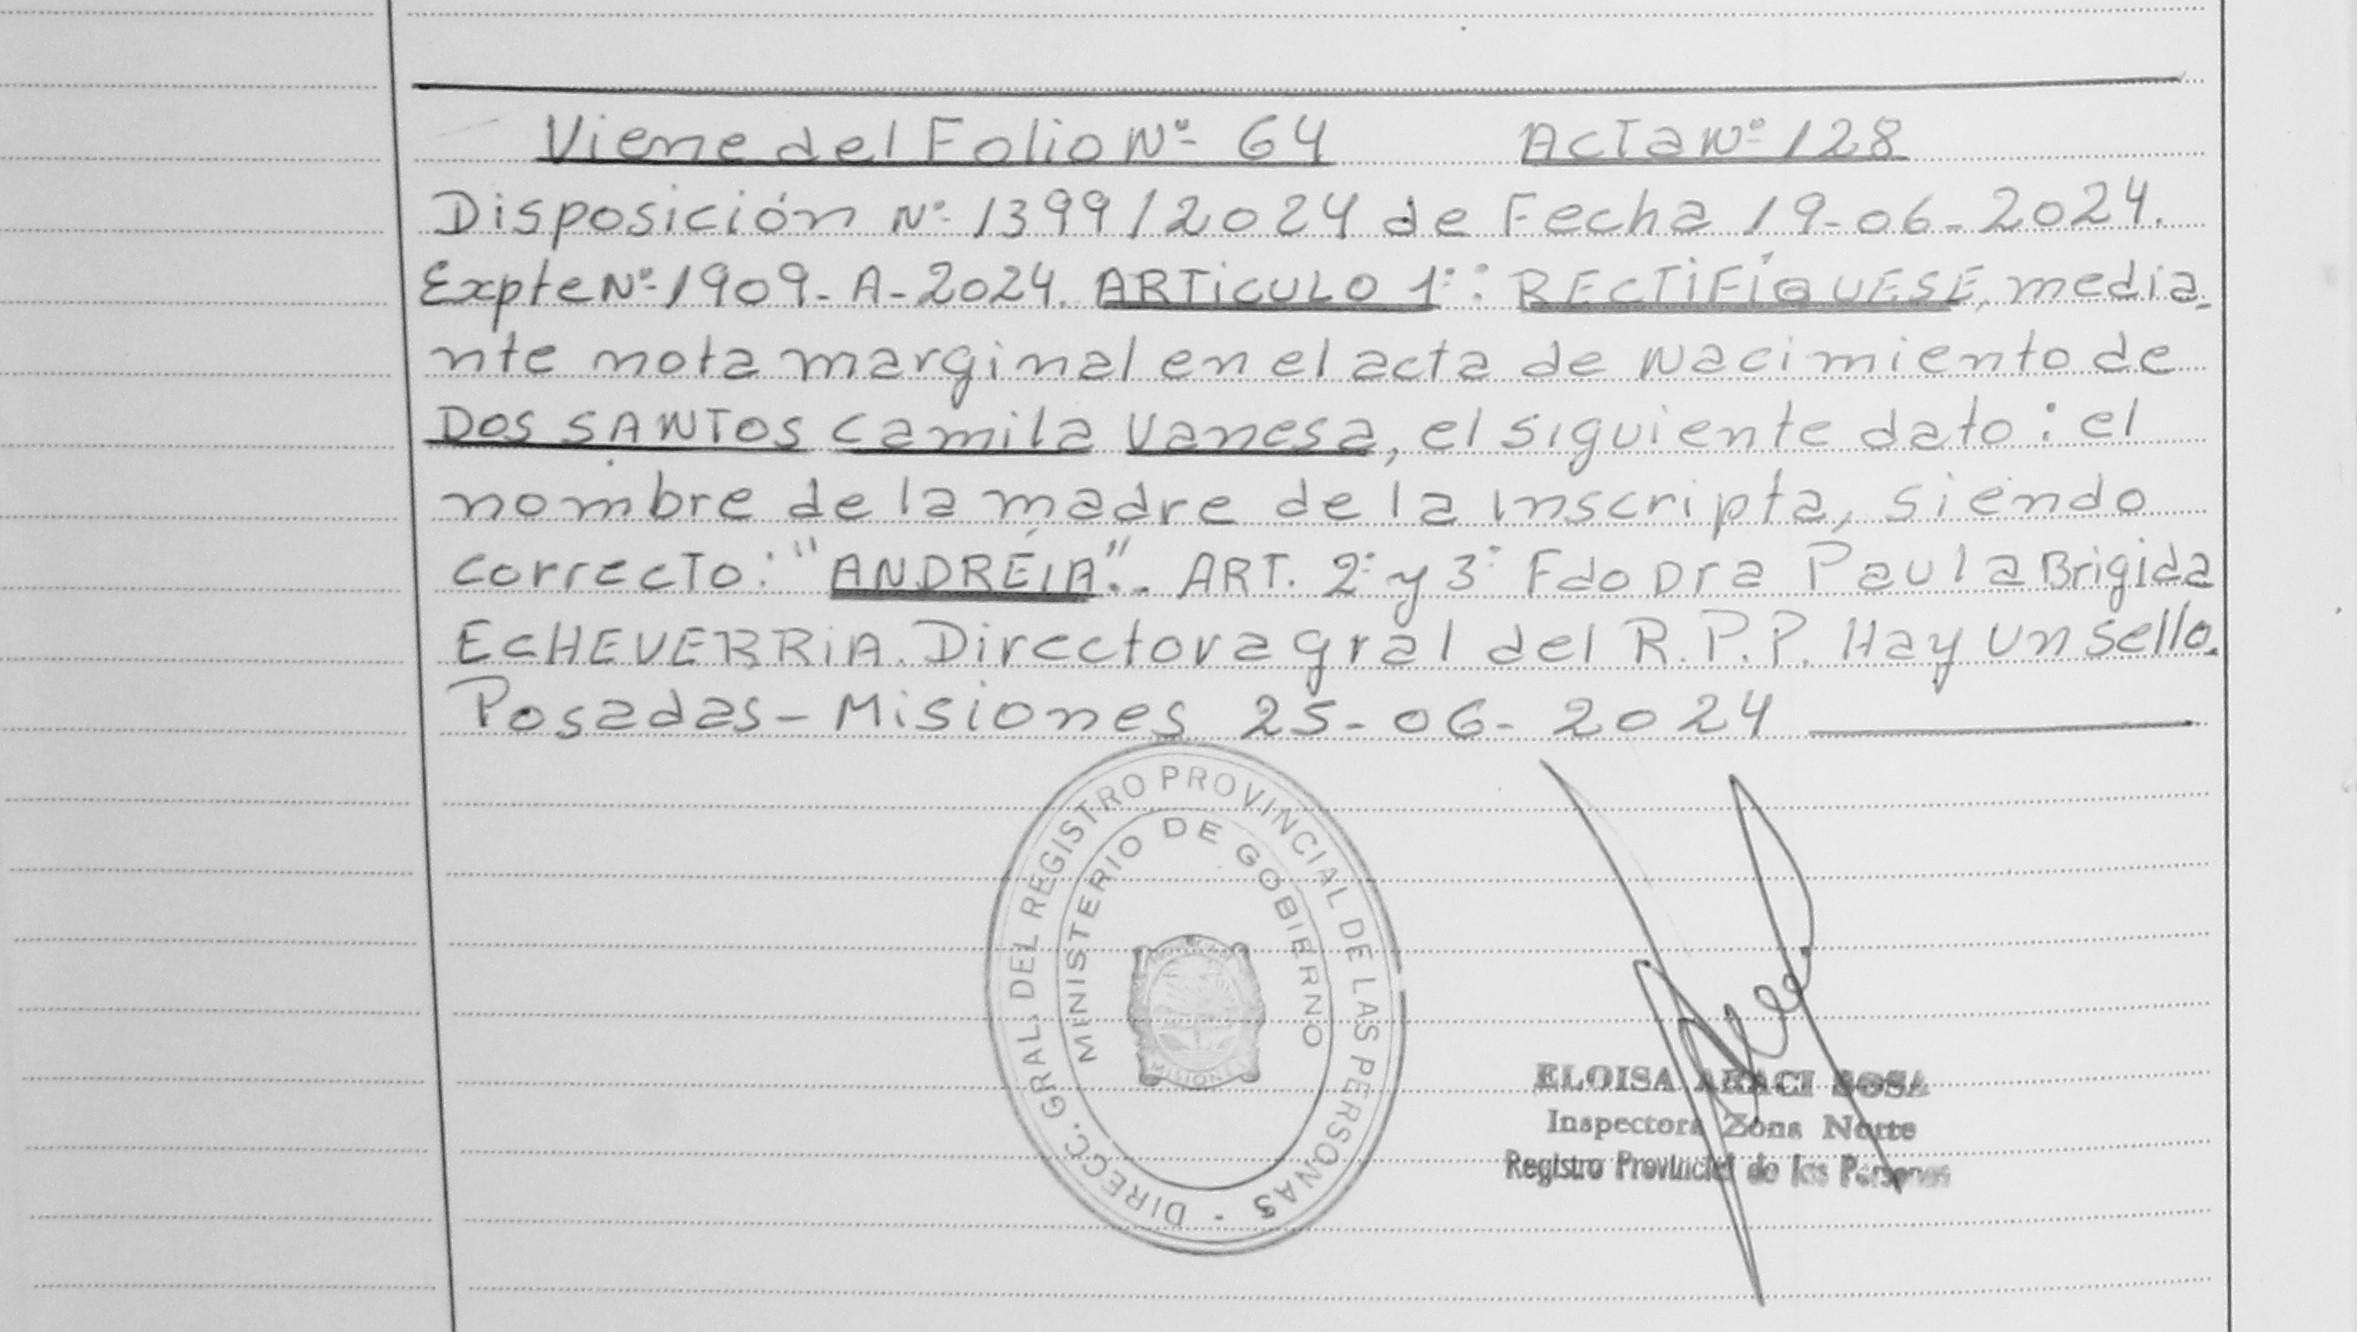 Viene del Folio Nº 64 Acta Nº 128
Disposición Nº 1399/2024 de Fecha 19-06-2024.
Expte Nº 1909-A-2024. ARTiCULO 1º: RECTiFÍQUESE, media-
nte nota marginal en el acta de Nacimiento de
DOS SANTOS Camila Vanesa, el siguiente dato: el
nombre de la madre de la inscripta, siendo
correcto: "ANDRÉIA".- ART. 2º y 3º Fdo Dra Paula Brigida
ECHEVERRiA. Directora gral del R.P.P. Hay un sello.
Posadas - Misiones 25-06-2024
DIRECC. GRAL. DEL REGISTRO PROVINCIAL DE LAS PERSONAS -
MINISTERIO DE GOBIERNO
MISIONES
ELOISA ARACI SOSA
Inspectora Zona Norte
Registro Provincial de las Personas